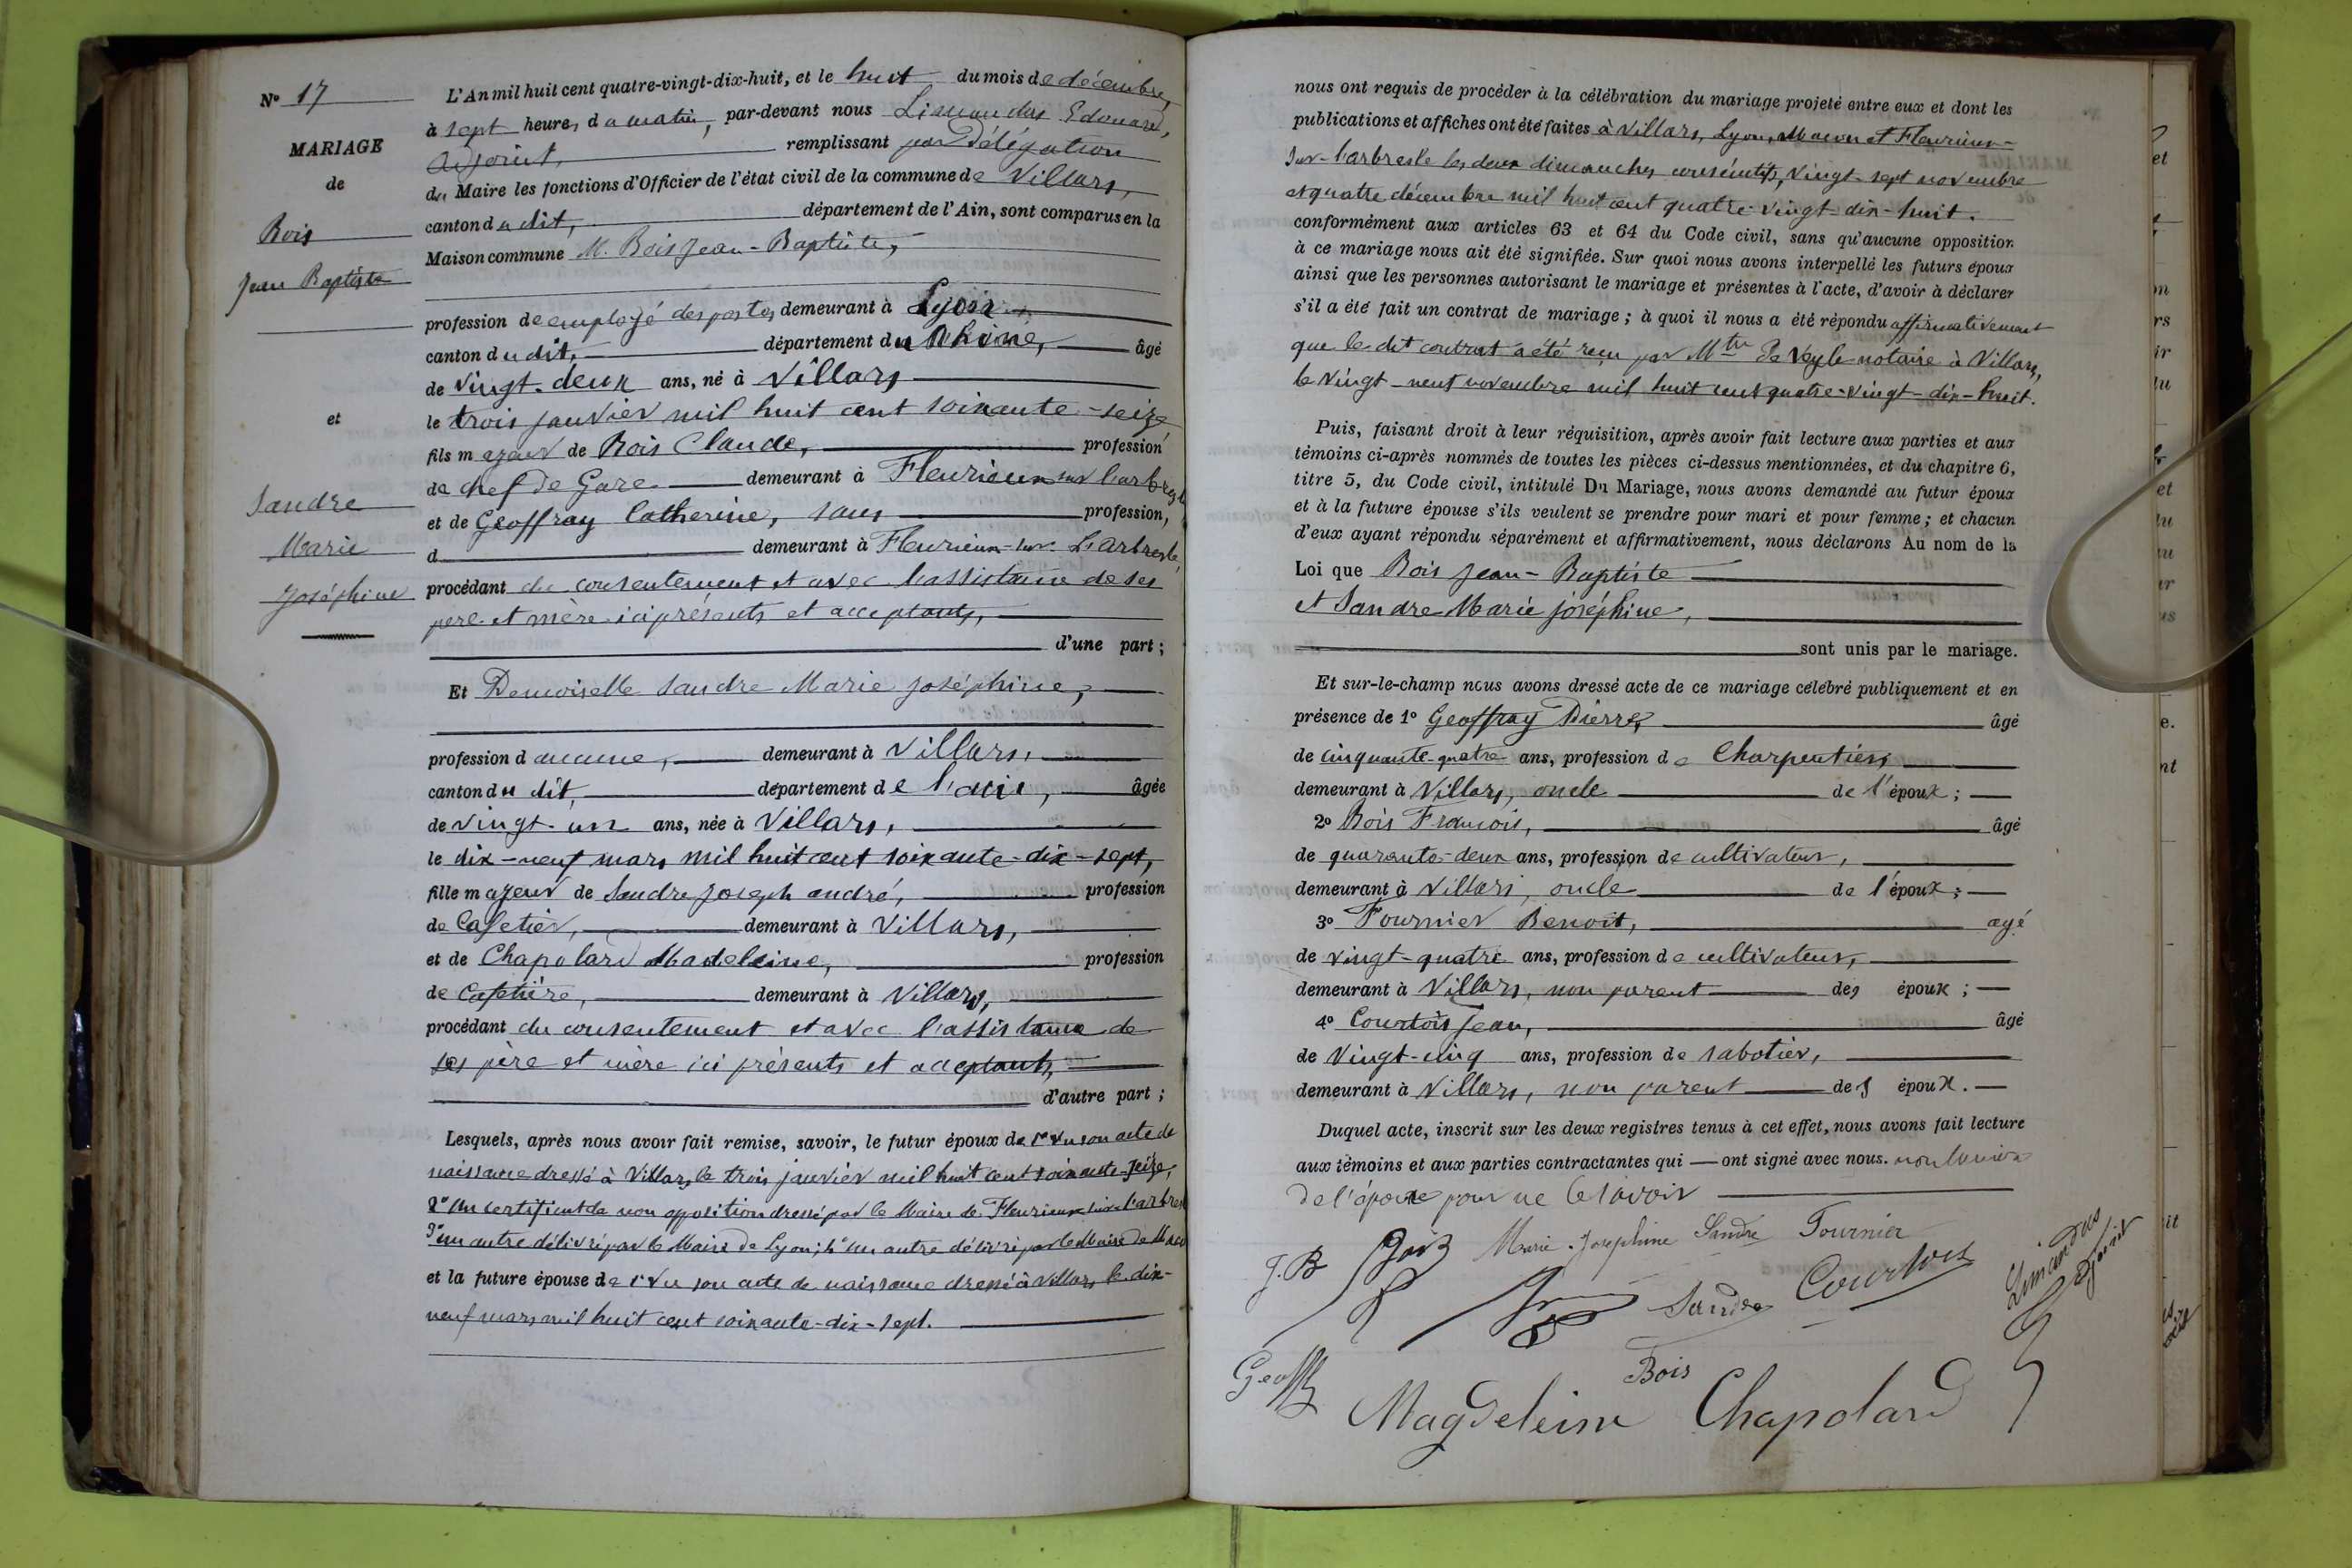 Nº 17
MARIAGE
de
Bois
Jean Baptiste
et
Sandre
Marie
Joséphine
L'An mil huit cent quatre-vingt-dix-huit, et le huit du mois de décembre,
à sept heures du matin, par-devant nous Limandas Edouard,
adjoint, remplissant par Délégation
du Maire les fonctions d'Officier de l'état civil de la commune de Villars,
canton du dit, département de l'Ain, sont comparus en la
Maison commune M. Bois Jean-Baptiste,
profession de employé des postes demeurant à Lyon
canton du dit, département du Rhône, âgé
de vingt-deux ans, né à Villars
le trois janvier mil huit cent soixante-seize
fils majeur de Bois Claude, profession
de chef de Gare demeurant à Fleurieux sur l'arbresle
et de Geoffray Catherine, sans profession,
d demeurant à Fleurieux-sur-L'Arbresle,
procédant du consentement et avec l'assistance de ses
père et mère ici présents et acceptants,
d'une part ;
Et Demoiselle Sandre Marie Joséphine,
profession d aucune, demeurant à Villars,
canton du dit, département de l'ain, âgée
de vingt-un ans, née à Villars,
le dix-neuf mars mil huit cent soixante-dix-sept,
fille majeur de Sandre Joseph andré, profession
de Cafetier, demeurant à Villars,
et de Chapolard Madeleine, profession
de Cafetière, demeurant à Villars,
procédant du consentement et avec l'assistance de
ses père et mère ici présents et acceptants,
d'autre part ;
Lesquels, après nous avoir fait remise, savoir, le futur époux de 1º Vu son acte de
naissance dressé à Villars, le trois janvier mil huit cent soixante-seize,
2º Un certificat de non opposition dressé par le Maire de Fleurieux sur l'arbres
3º un autre délivré par le Maire de Lyon; 4º Un autre délivré par le Maire de Macon
et la future épouse de 1º Vu son acte de naissance dressé à Villars, le dix-
neuf mars mil huit cent soixante-dix-sept.
nous ont requis de procéder à la célébration du mariage projeté entre eux et dont les
publications et affiches ont été faites à Villars, Lyon, Macon et Fleurieux-
sur-l'arbresle les deux dimanches consécutifs, vingt-sept novembre
et quatre décembre mil huit cent quatre-vingt-dix-huit.
conformément aux articles 63 et 64 du Code civil, sans qu'aucune opposition
à ce mariage nous ait été signifiée. Sur quoi nous avons interpellé les futurs époux
ainsi que les personnes autorisant le mariage et présentes à l'acte, d'avoir à déclarer
s'il a été fait un contrat de mariage ; à quoi il nous a été répondu affirmativement
que le dit contrat a été reçu par Mtre De Veyle notaire à Villars,
le vingt-neuf novembre mil huit cent quatre-vingt-dix-huit.
Puis, faisant droit à leur réquisition, après avoir fait lecture aux parties et aux
témoins ci-après nommés de toutes les pièces ci-dessus mentionnées, et du chapitre 6,
titre 5, du Code civil, intitulé Du Mariage, nous avons demandé au futur époux
et à la future épouse s'ils veulent se prendre pour mari et pour femme ; et chacun
d'eux ayant répondu séparément et affirmativement, nous déclarons Au nom de la
Loi que Bois Jean-Baptiste
et Sandre Marie joséphine,
sont unis par le mariage.
Et sur-le-champ nous avons dressé acte de ce mariage célébré publiquement et en
présence de 1º Geoffray Pierre, âgé
de cinquante-quatre ans, profession de Charpentier,
demeurant à Villars, oncle de l'époux ;
2º Bois François, âgé
de quarante-deux ans, profession de cultivateur,
demeurant à Villars, oncle de l'époux ;
3º Fournier Benoit, agé
de vingt-quatre ans, profession de cultivateur,
demeurant à Villars, non parent des époux ;
4º Courtois Jean, âgé
de Vingt-cinq ans, profession de sabotier,
demeurant à Villars, non parent des époux.
Duquel acte, inscrit sur les deux registres tenus à cet effet, nous avons fait lecture
aux témoins et aux parties contractantes qui ont signé avec nous. non la mère
de l'époux pour ne le savoir
J. B Bois Marie-Josephine Sandre Fournier
Sandre Courtois Limandas
adjoint
Geoff Bois
Magdeleine Chapolard